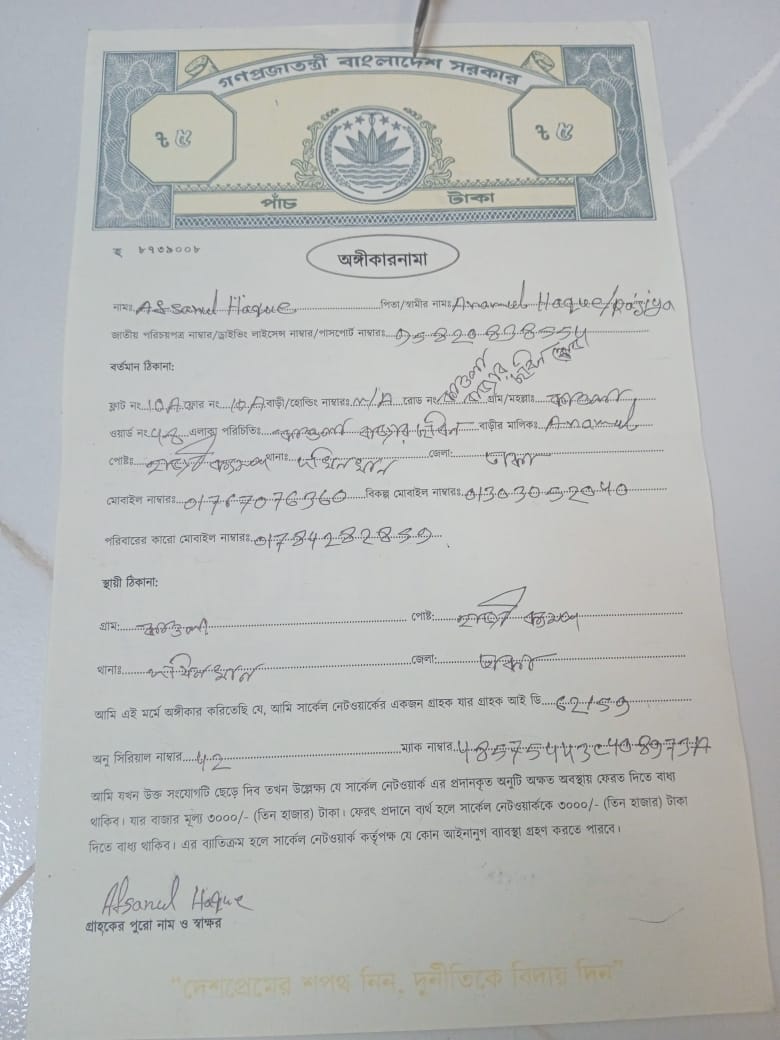 গণপ্রজাতন্ত্রী বাংলাদেশ সরকার
৳ ৫ ৳ ৫
পাঁচ টাকা
হ ৮৭৩৯০০৮
অঙ্গীকারনামা
নামঃ Afsanul Haque পিতা/স্বামীর নামঃ Anamul Haque/
জাতীয় পরিচয়পত্র নাম্বার/ড্রাইভিং লাইসেন্স নাম্বার/পাসপোর্ট নাম্বারঃ
বর্তমান ঠিকানা:
ফ্লাট নং 10A ফ্লোর নং 10A বাড়ী/হোল্ডিং নাম্বারঃ N/A রোড নং গ্রাম/মহল্লাঃ কাওলা
ওয়ার্ড নং এলাকা পরিচিতিঃ কাওলা বাড়ীর মালিকঃ Anamul
পোষ্টঃ থানাঃ দক্ষিনখান জেলা: ঢাকা
মোবাইল নাম্বারঃ 01767076360 বিকল্প মোবাইল নাম্বারঃ 01303052040
পরিবারের কারো মোবাইল নাম্বারঃ 01784282859
স্থায়ী ঠিকানা:
গ্রাম: কাওলা পোষ্ট:
থানাঃ দক্ষিনখান জেলা: ঢাকা
আমি এই মর্মে অঙ্গীকার করিতেছি যে, আমি সার্কেল নেটওয়ার্কের একজন গ্রাহক যার গ্রাহক আই ডি 62159
অনু সিরিয়াল নাম্বার 42 ম্যাক নাম্বার
আমি যখন উক্ত সংযোগটি ছেড়ে দিব তখন উল্লেক্ষ্য যে সার্কেল নেটওয়ার্ক এর প্রদানকৃত অনুটি অক্ষত অবস্থায় ফেরত দিতে বাধ্য
থাকিব। যার বাজার মূল্য ৩০০০/- (তিন হাজার) টাকা। ফেরৎ প্রদানে ব্যর্থ হলে সার্কেল নেটওয়ার্ককে ৩০০০/- (তিন হাজার) টাকা
দিতে বাধ্য থাকিব। এর ব্যাতিক্রম হলে সার্কেল নেটওয়ার্ক কর্তৃপক্ষ যে কোন আইনানুগ ব্যাবস্থা গ্রহণ করতে পারবে।
Afsanul Haque
গ্রাহকের পুরো নাম ও স্বাক্ষর
"দেশপ্রেমের শপথ নিন, দুর্নীতিকে বিদায় দিন"